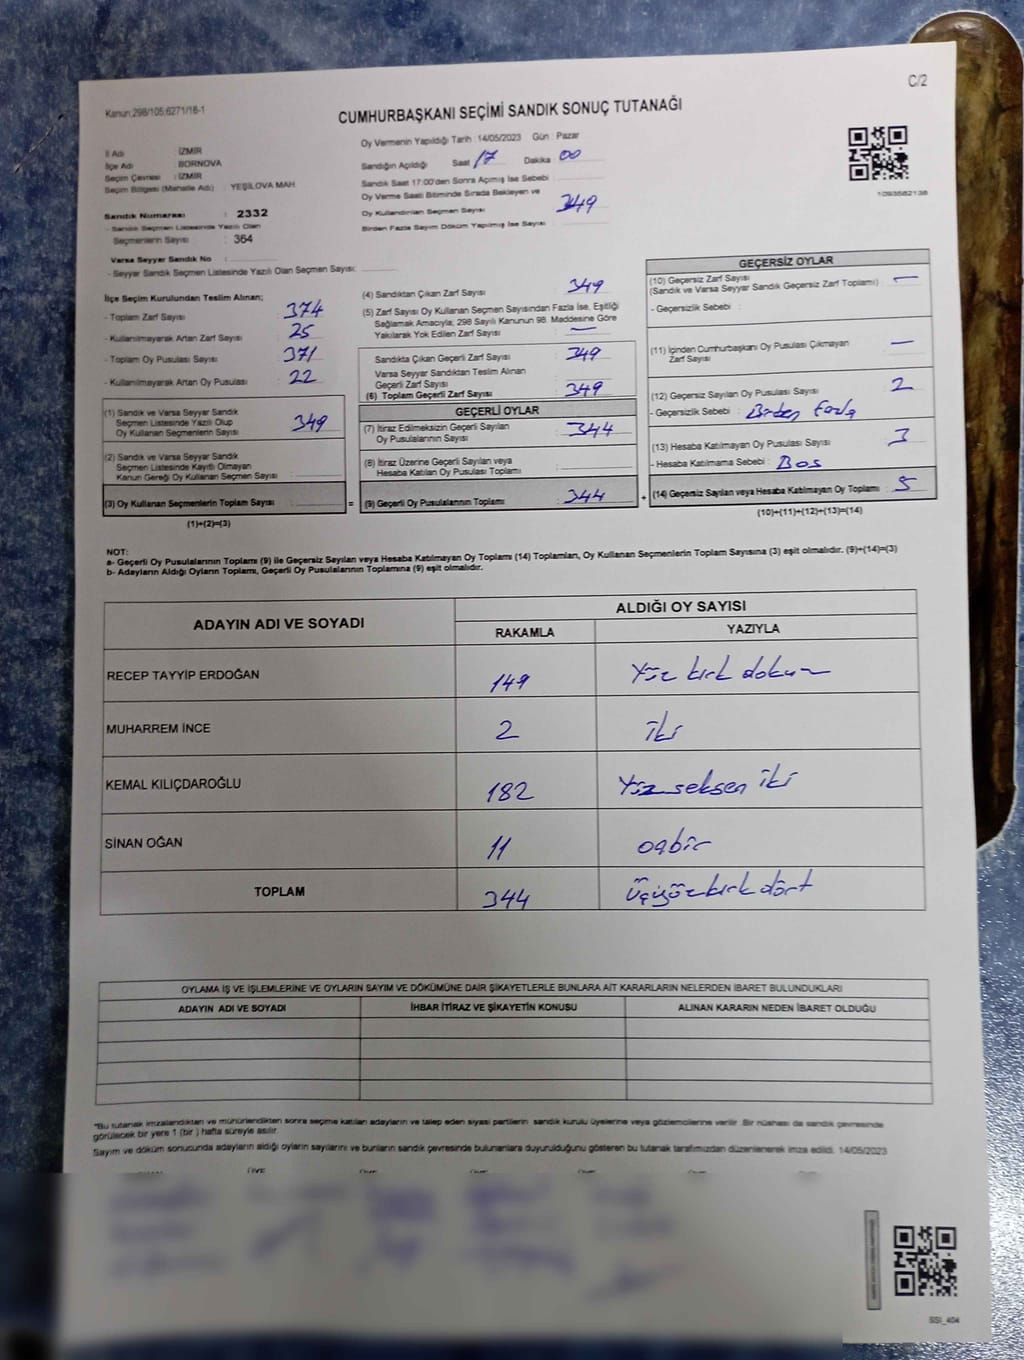 C/2
Kanun:298/105;6271/18-1
CUMHURBAŞKANI SEÇİMİ SANDIK SONUÇ TUTANAĞI
İl Adı : İZMİR
İlçe Adı : BORNOVA
Seçim Çevresi : İZMİR
Seçim Bölgesi (Mahalle Adı) : YEŞİLOVA MAH.
Sandık Numarası : 2332
- Sandık Seçmen Listesinde Yazılı Olan
Seçmenlerin Sayısı : 364
Varsa Seyyar Sandık No :
- Seyyar Sandık Seçmen Listesinde Yazılı Olan Seçmen Sayısı:
Oy Vermenin Yapıldığı Tarih : 14/05/2023 Gün : Pazar
Sandığın Açıldığı Saat 17 Dakika 00
Sandık Saat 17:00'den Sonra Açımış İse Sebebi :
Oy Verme Saati Bitiminde Sırada Bekleyen ve
Oy Kullandırılan Seçmen Sayısı 349
Birden Fazla Sayım Döküm Yapılmış İse Sayısı :
1093582138
İlçe Seçim Kurulundan Teslim Alınan;
- Toplam Zarf Sayısı 374
- Kullanılmayarak Artan Zarf Sayısı 25
- Toplam Oy Pusulası Sayısı 371
- Kullanılmayarak Artan Oy Pusulası 22
(1) Sandık ve Varsa Seyyar Sandık
Seçmen Listesinde Yazılı Olup
Oy Kullanan Seçmenlerin Sayısı 349
(2) Sandık ve Varsa Seyyar Sandık
Seçmen Listesinde Kayıtlı Olmayan
Kanun Gereği Oy Kullanan Seçmen Sayısı :
(3) Oy Kullanan Seçmenlerin Toplam Sayısı :
=
(1)+(2)=(3)
(4) Sandıktan Çıkan Zarf Sayısı : 349
(5) Zarf Sayısı Oy Kullanan Seçmen Sayısından Fazla İse, Eşitliği
Sağlamak Amacıyla; 298 Sayılı Kanunun 98. Maddesine Göre
Yakılarak Yok Edilen Zarf Sayısı : —
Sandıkta Çıkan Geçerli Zarf Sayısı : 349
Varsa Seyyar Sandıktan Teslim Alınan
Geçerli Zarf Sayısı :
(6) Toplam Geçerli Zarf Sayısı : 349
GEÇERLİ OYLAR
(7) İtiraz Edilmeksizin Geçerli Sayılan
Oy Pusulalarının Sayısı : 344
(8) İtiraz Üzerine Geçerli Sayılan veya
Hesaba Katılan Oy Pusulası Toplamı :
(9) Geçerli Oy Pusulalarının Toplamı : 344
+
GEÇERSİZ OYLAR
(10) Geçersiz Zarf Sayısı
(Sandık ve Varsa Seyyar Sandık Geçersiz Zarf Toplamı) : —
- Geçersizlik Sebebi :
(11) İçinden Cumhurbaşkanı Oy Pusulası Çıkmayan
Zarf Sayısı —
(12) Geçersiz Sayılan Oy Pusulası Sayısı : 2
- Geçersizlik Sebebi : Birden Fazla
(13) Hesaba Katılmayan Oy Pusulası Sayısı 3
- Hesaba Katılmama Sebebi : Boş
(14) Geçersiz Sayılan veya Hesaba Katılmayan Oy Toplamı : 5
(10)+(11)+(12)+(13)=(14)
NOT:
a- Geçerli Oy Pusulalarının Toplamı (9) ile Geçersiz Sayılan veya Hesaba Katılmayan Oy Toplamı (14) Toplamları, Oy Kullanan Seçmenlerin Toplam Sayısına (3) eşit olmalıdır. (9)+(14)=(3)
b- Adayların Aldığı Oyların Toplamı, Geçerli Oy Pusulalarının Toplamına (9) eşit olmalıdır.
ADAYIN ADI VE SOYADI
ALDIĞI OY SAYISI
RAKAMLA YAZIYLA
RECEP TAYYİP ERDOĞAN 149 Yüz kırk dokuz
MUHARREM İNCE 2 iki
KEMAL KILIÇDAROĞLU 182 Yüz seksen iki
SİNAN OĞAN 11 onbir
TOPLAM 344 Üçyüz kırk dört
OYLAMA İŞ VE İŞLEMLERİNE VE OYLARIN SAYIM VE DÖKÜMÜNE DAİR ŞİKAYETLERLE BUNLARA AİT KARARLARIN NELERDEN İBARET BULUNDUKLARI
ADAYIN ADI VE SOYADI İHBAR İTİRAZ VE ŞİKAYETİN KONUSU ALINAN KARARIN NEDEN İBARET OLDUĞU
"Bu tutanak imzalandıktan ve mühürlendikten sonra seçime katılan adayların ve talep eden siyasi partilerin sandık kurulu üyelerine veya gözlemcilerine verilir. Bir nüshası da sandık çevresinde
görülecek bir yere 1 (bir ) hafta süreyle asılır.
Sayım ve döküm sonucunda adayların aldığı oyların sayılarını ve bunların sandık çevresinde bulunanlara duyurulduğunu gösteren bu tutanak tarafımızdan düzenlenerek imza edildi. 14/05/2023
SSI_404